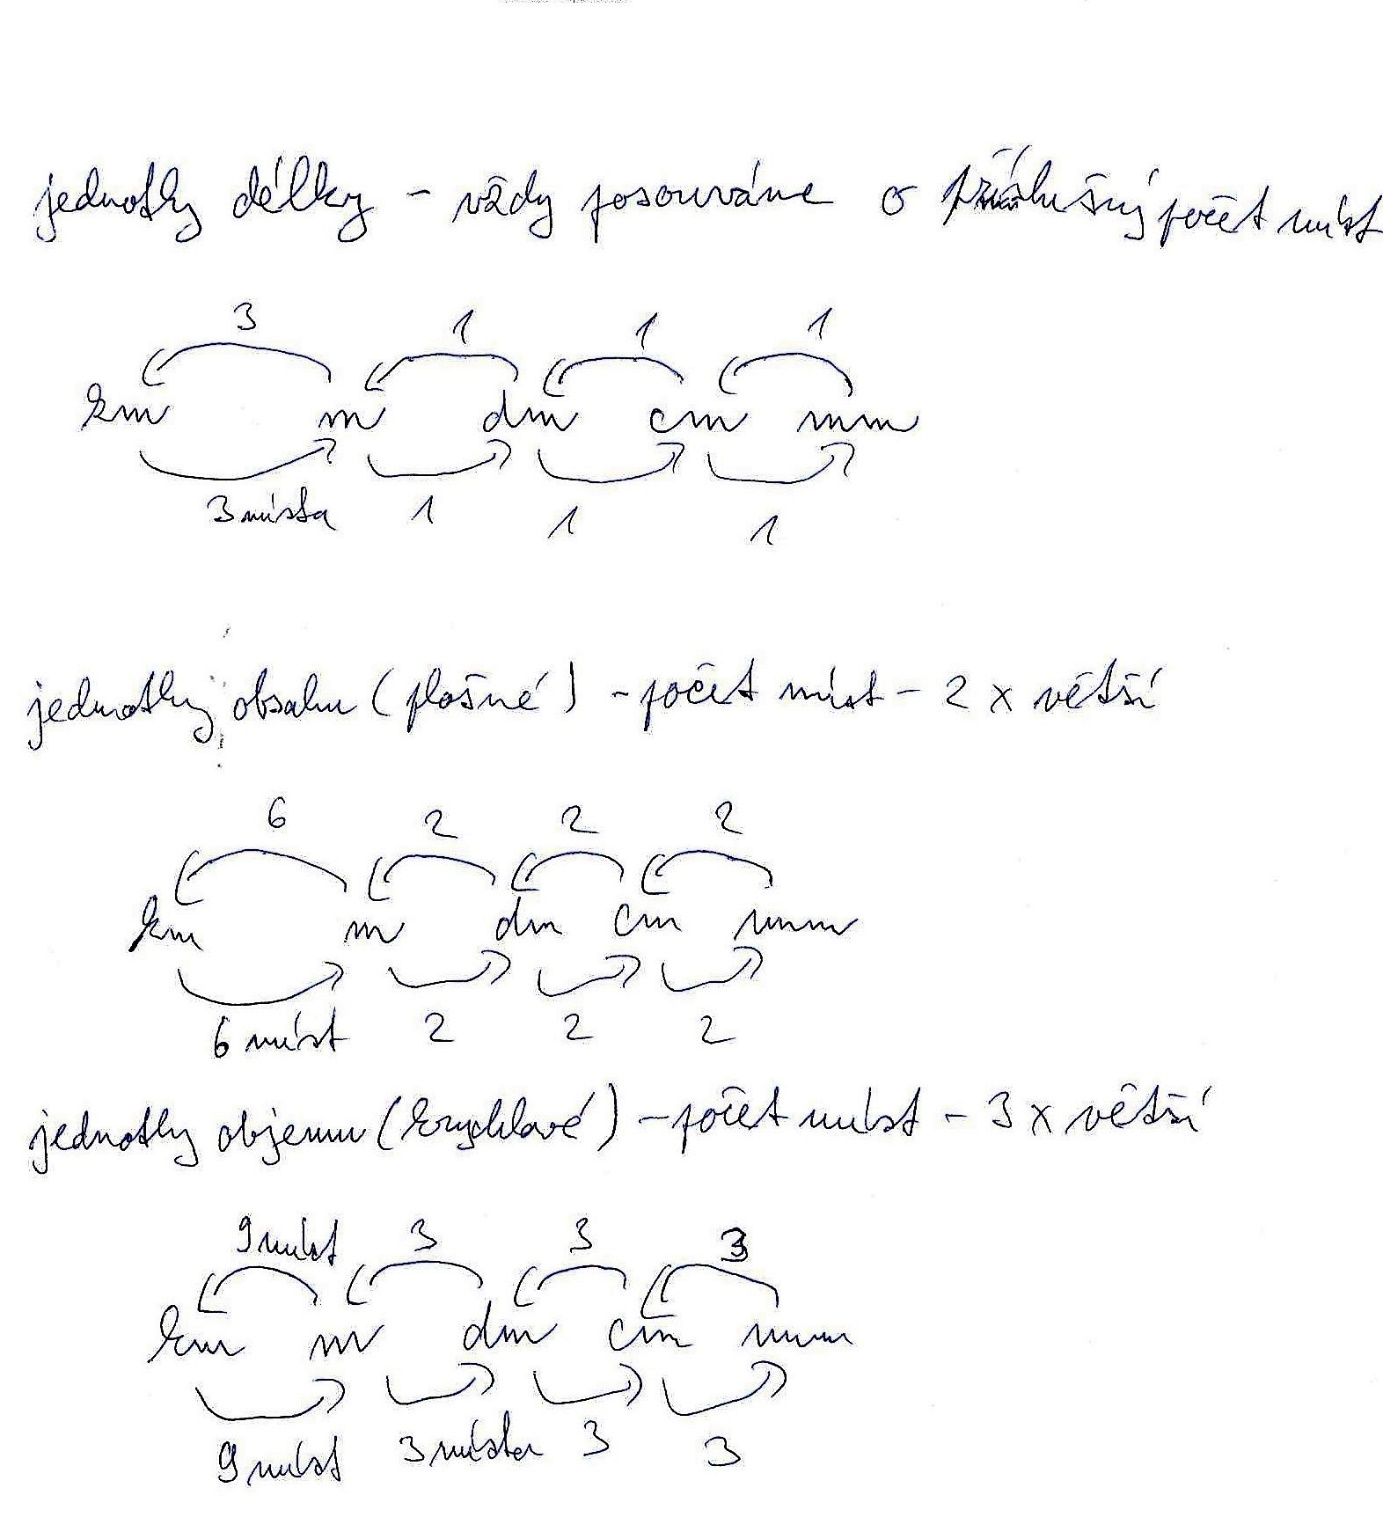 jednotky délky – vždy posouváme o příslušný počet míst
3 1 1 1
km m dm cm mm
3 místa 1 1 1
jednotky obsahu (plošné) – počet míst – 2 x větší
6 2 2 2
km m dm cm mm
6 míst 2 2 2
jednotky objemu (krychlové) – počet míst – 3 x větší
9 míst 3 3 3
km m dm cm mm
9 míst 3 místa 3 3